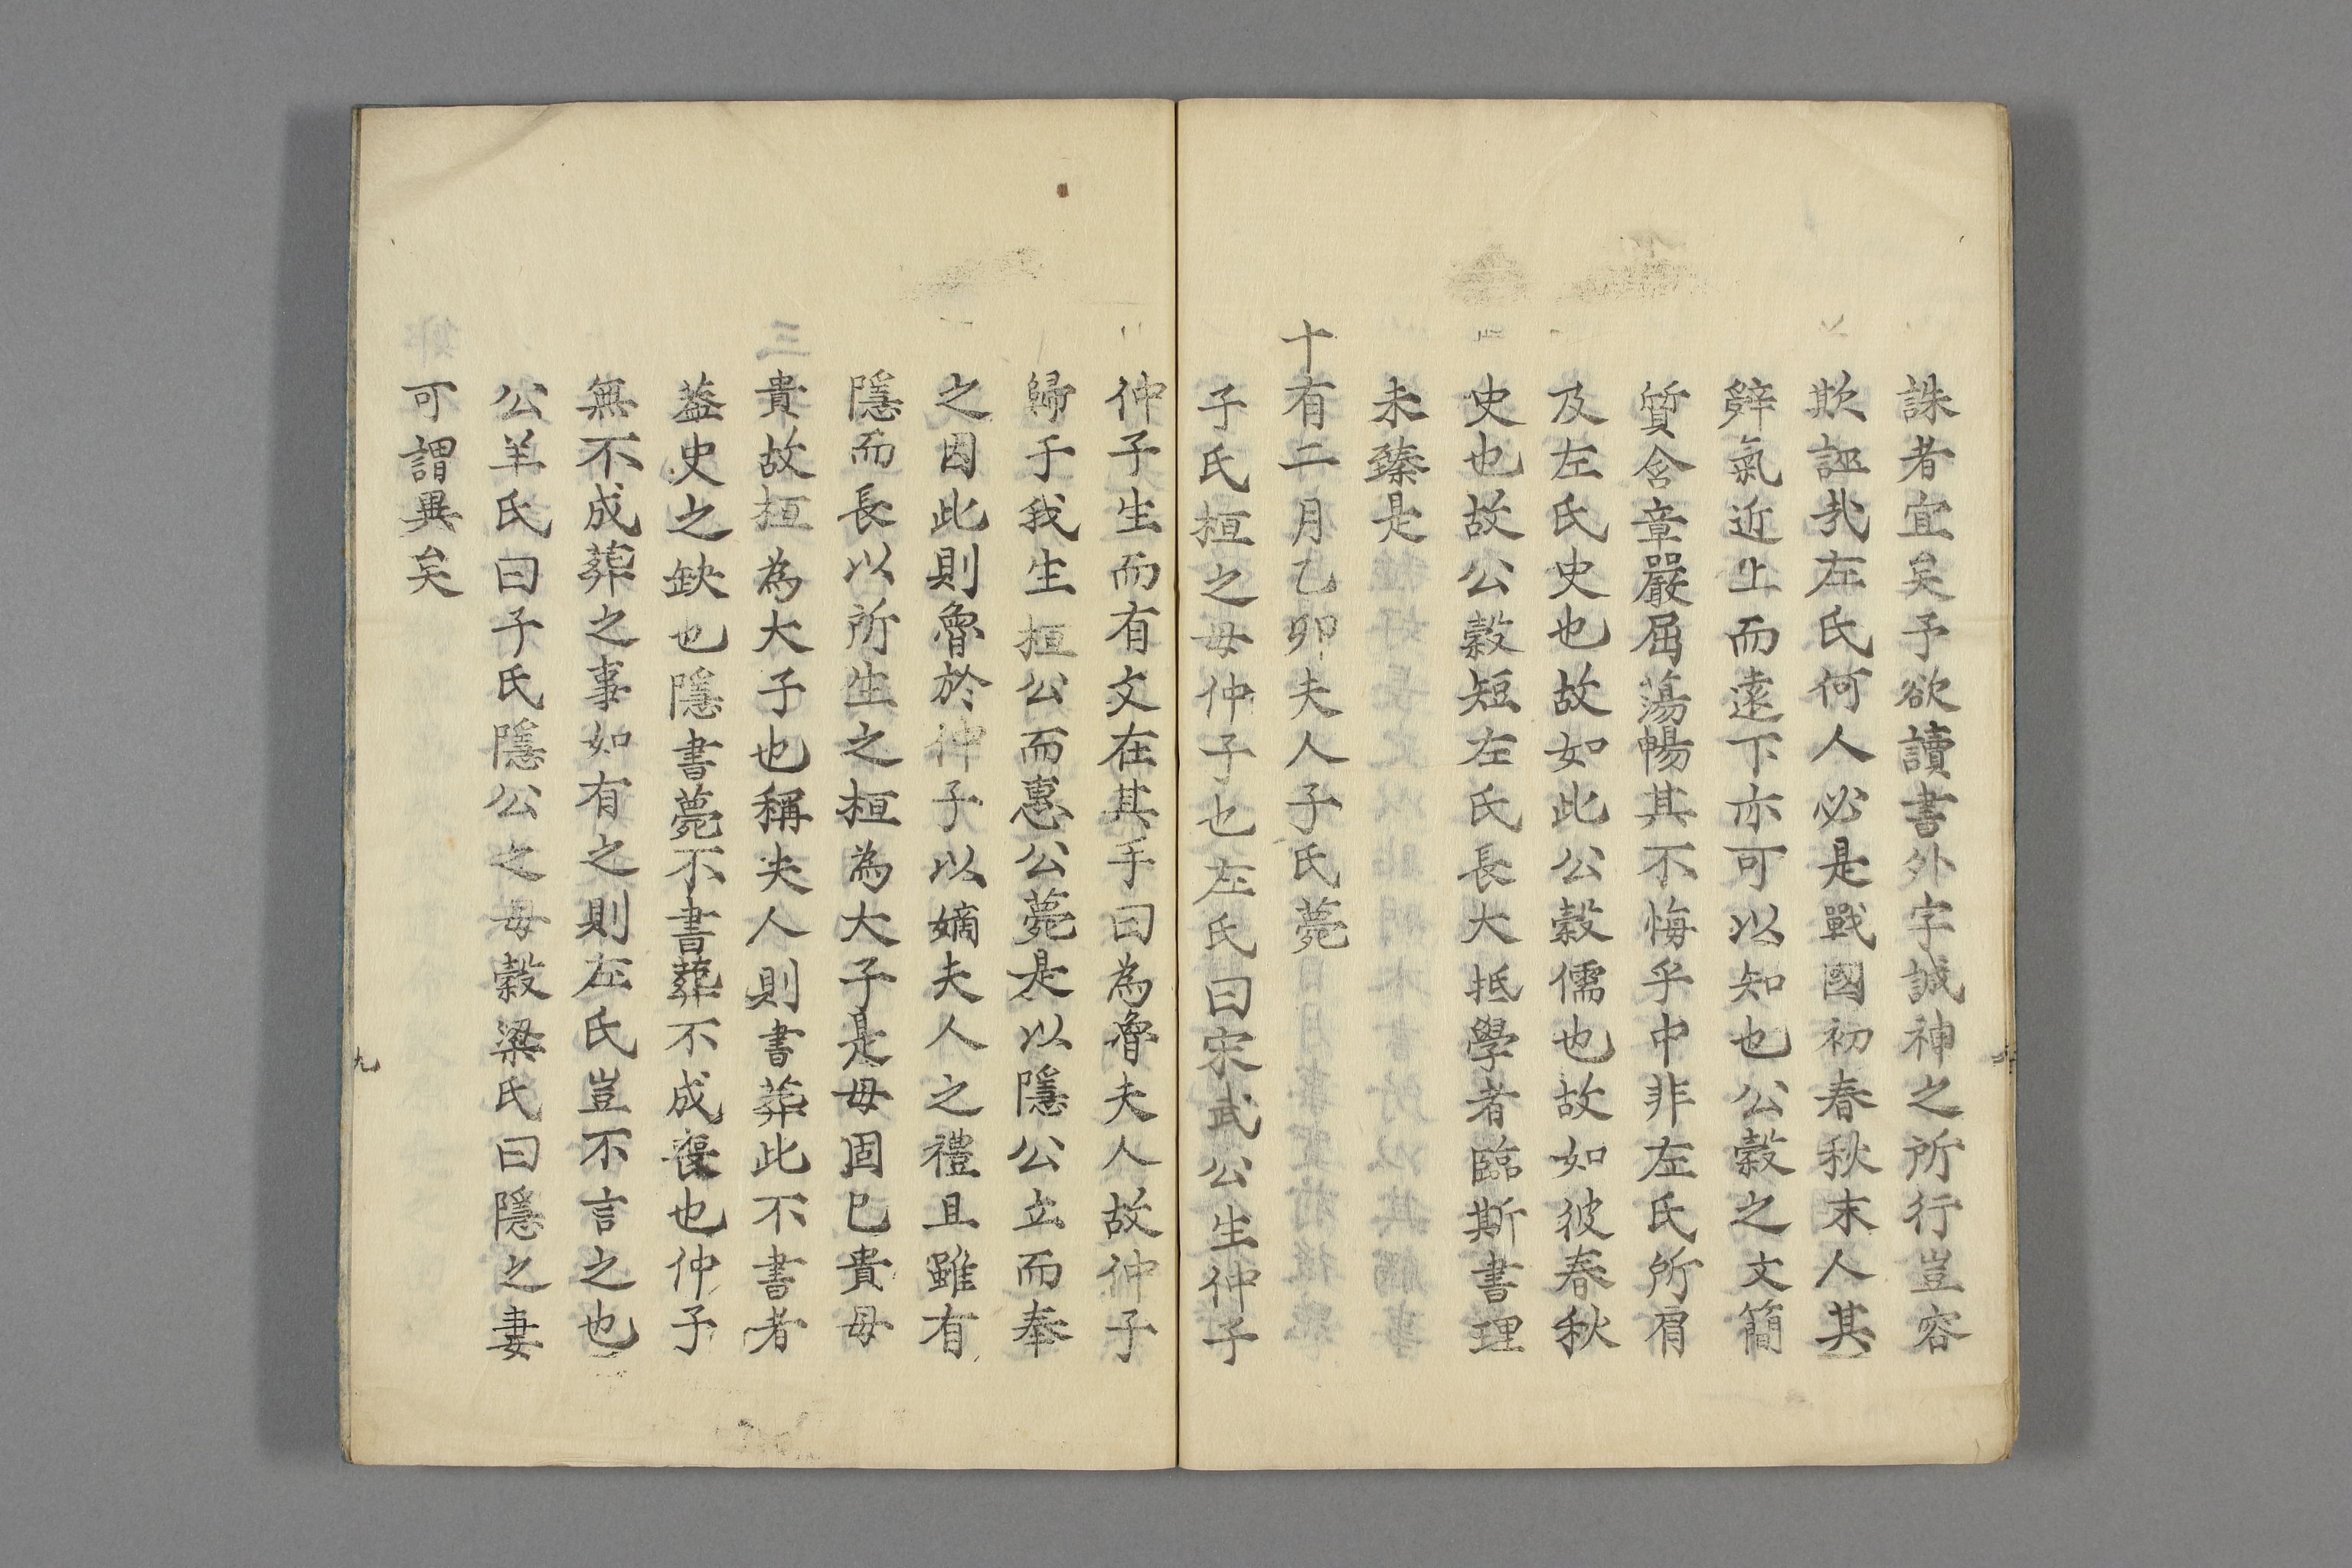 誅者宜矣予欲讀書外字誠神之所行豈容
欺誣哉左氏何人必是戰國初春秋末人其
辭氣近上而遠下亦可以知也公穀之文簡
質含章嚴屈蕩暢其不悔乎中非左氏所肩
及左氏史也故如此公穀儒也故如彼春秋
史也故公穀短左氏長大抵學者臨斯書理
未臻是
十有二月乙卯夫人子氏薨
子氏桓之母仲子也左氏曰宋武公生仲子
仲子生而有文在其手曰為魯夫人故仲子
歸于我生桓公而惠公薨是以隱公立而奉
之因此則魯於仲子以嫡夫人之禮且雖有
隱而長以所生之桓為大子是母固已貴母
貴故桓為大子也稱夫人則書葬此不書者
蓋史之缺也隱書薨不書葬不成喪也仲子
無不成葬之事如有之則左氏豈不言之也
公羊氏曰子氏隱公之母穀梁氏曰隱之妻
可謂異矣
九